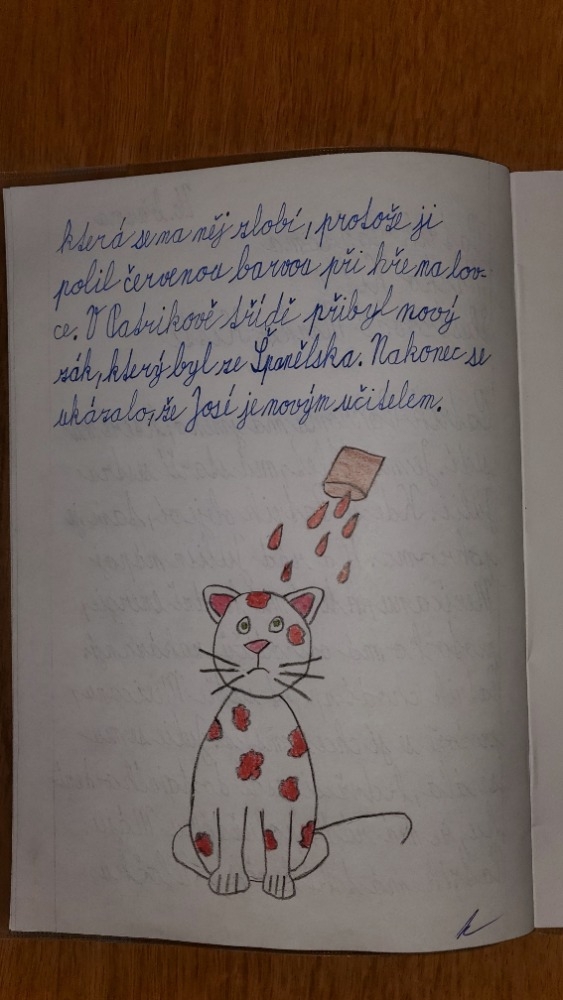 která se na něj zlobí, protože ji
polil červenou barvou při hře na lov-
ce. V Patrikově třídě přibyl nový
žák, který byl ze Španělska. Nakonec se
ukázalo, že José je novým učitelem.